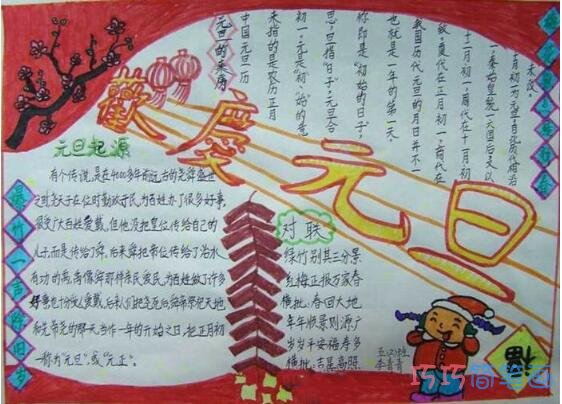 歡慶元旦
元旦的来历
中国元旦历
来指的是农历正月
初一,元是"初"、"始"的意
思,旦指"日子",元旦合
称即是"初始的日子",
也就是一年的第一天。
我国历代元旦的月日并不一
致,夏代在正月初一,商代在
十二月初一,周代在十一月初
一,秦始皇统一六国后又以
十月初一为元旦,自此历代相沿
未改。
元旦起源
有个传说,是在4000多年前远古的尧舜盛世
之时,尧天子在位时勤政于民,为百姓办了很多好事,
很受广大百姓爱戴,但他没把皇位传给自己的
儿子,而是传给了舜,后来舜把帝位传给了治水
有功的禹,禹像舜那样亲民爱民,为百姓做了许多
好事也十分受人爱戴,后来人们把尧舜
一称为"元旦"或"元正"。
爆竹一声除旧岁
对联
绿竹别其三分景
红梅正报万家春
横批:春回大地
年年顺景则源广
岁岁平安福寿多
横批:吉星高照
福
巧巧简笔画